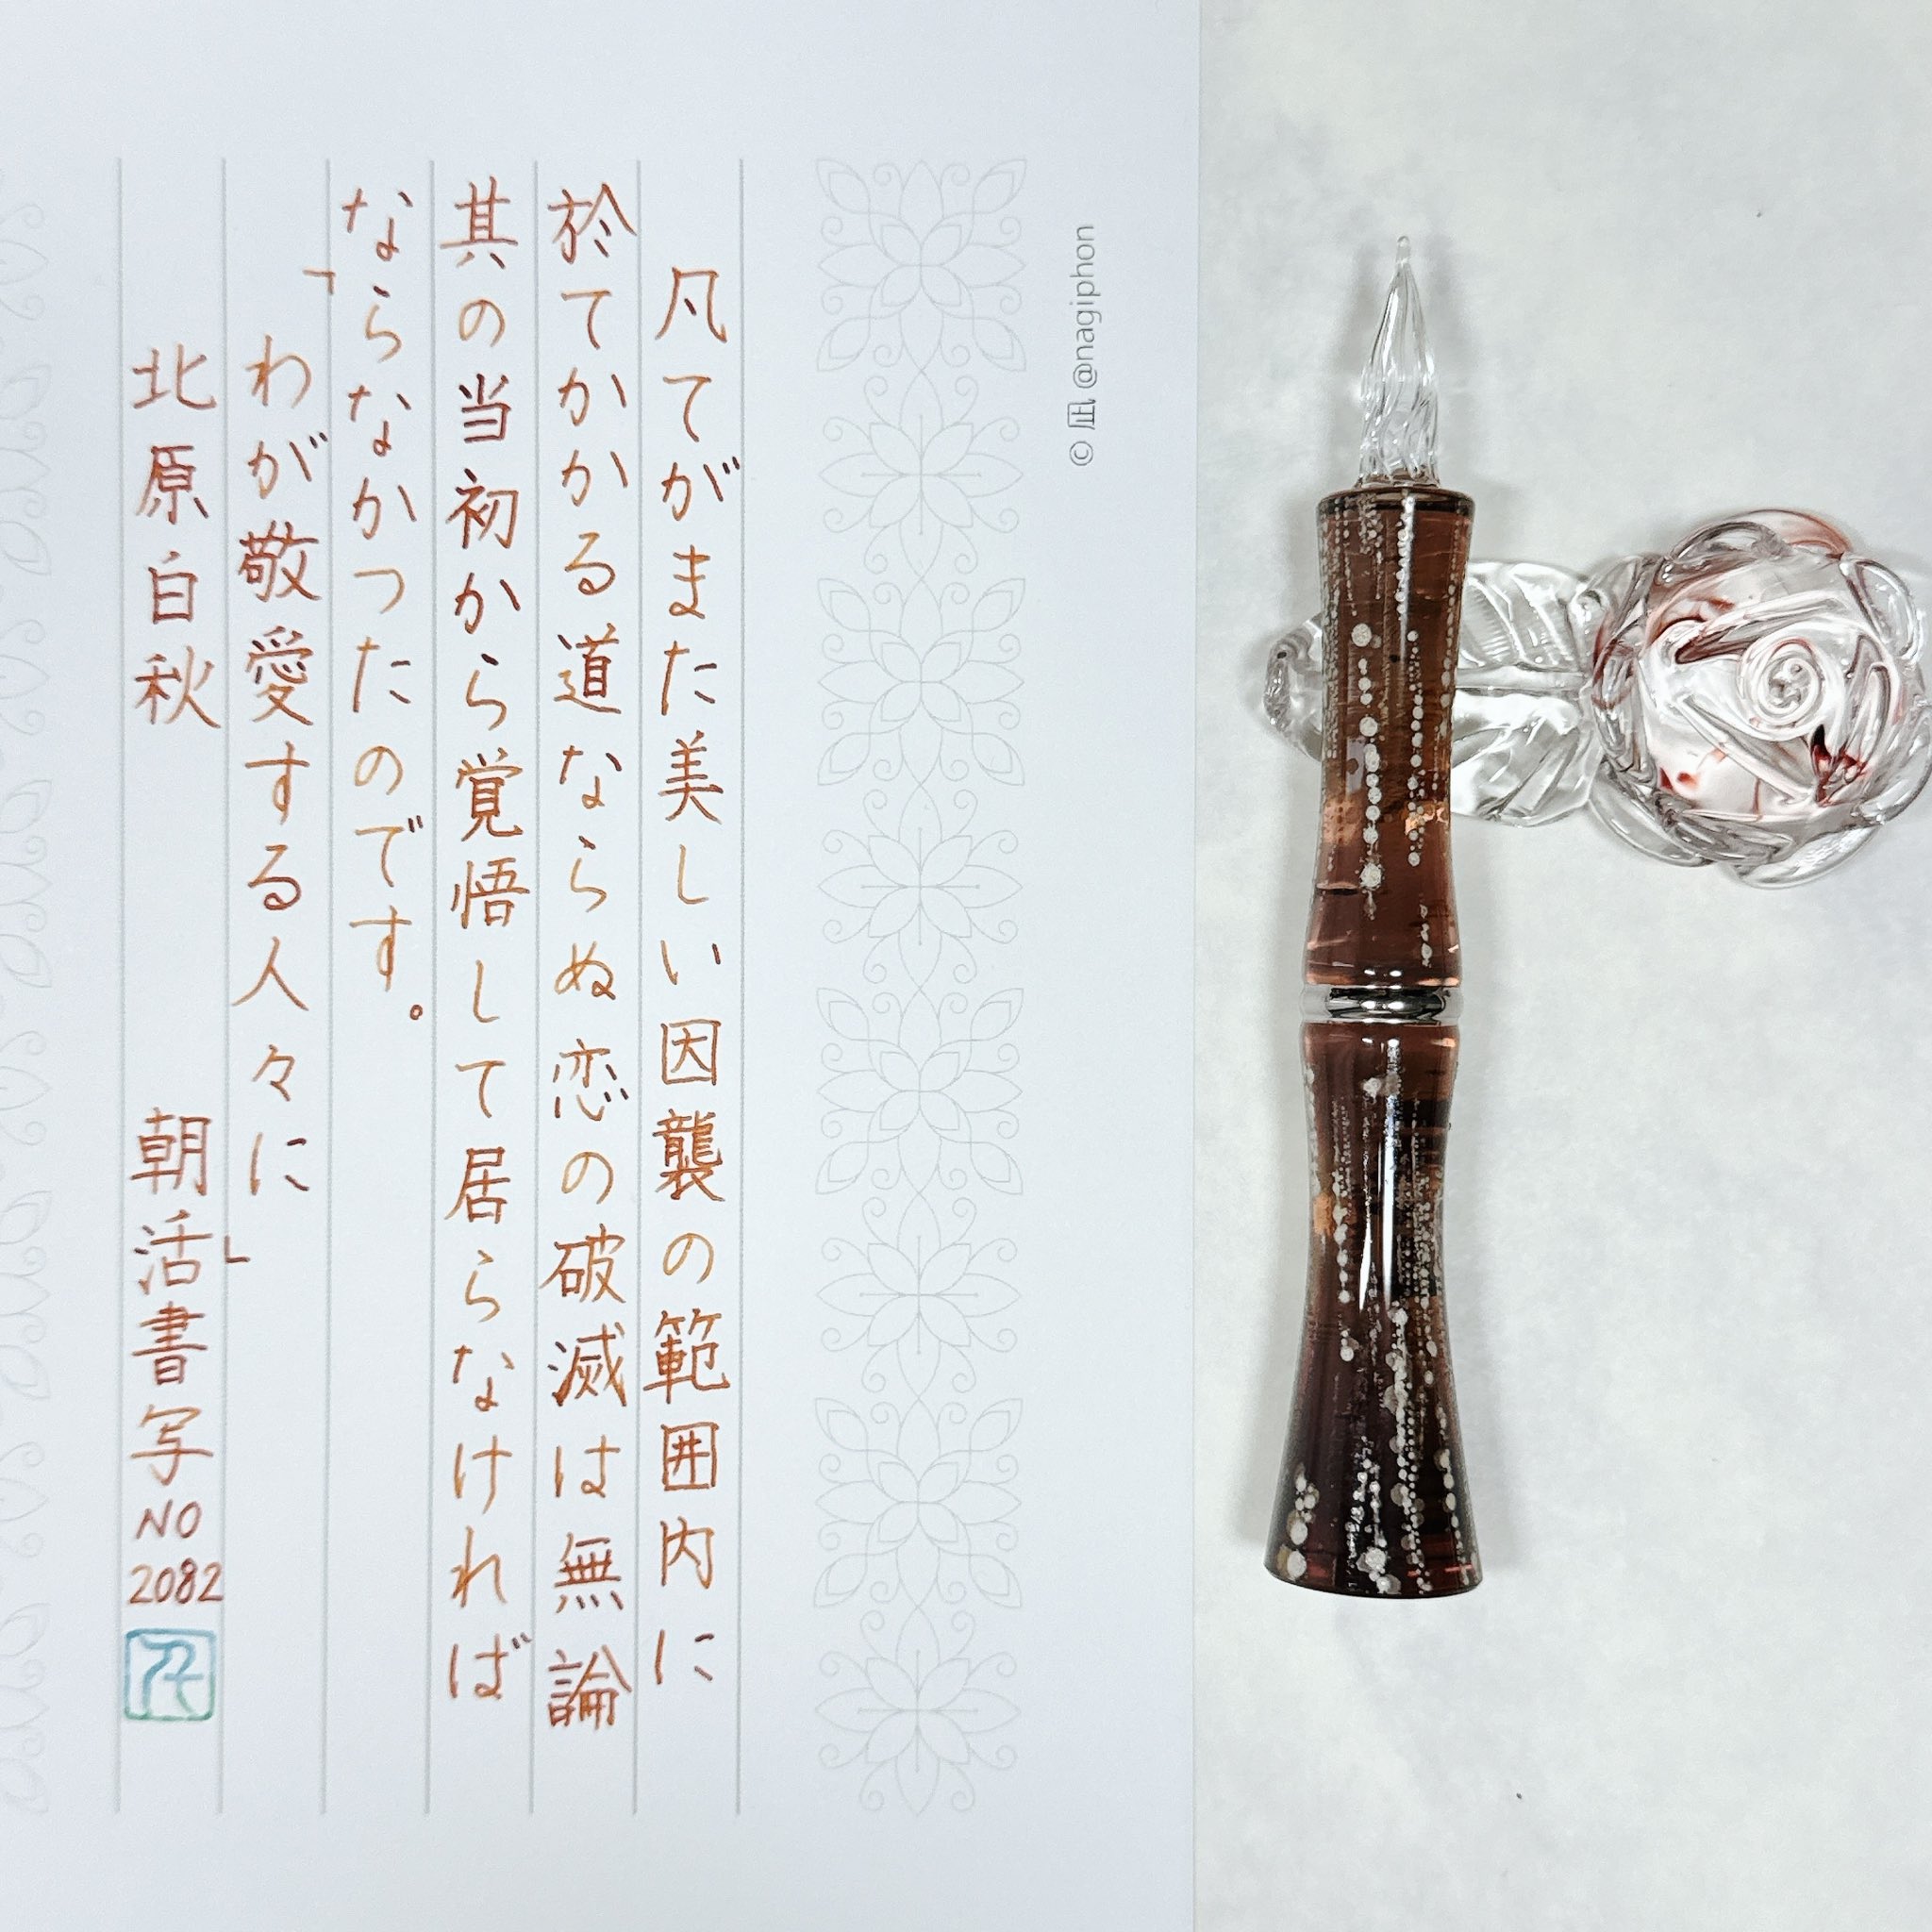 凡てがまた美しい因襲の範囲内に
於てかかる道ならぬ恋の破滅は無論
其の当初から覚悟して居らなければ
ならなかつたのです。
「わが敬愛する人々に」
北原白秋 朝活書写NO2082
© 凪 @nagiphon